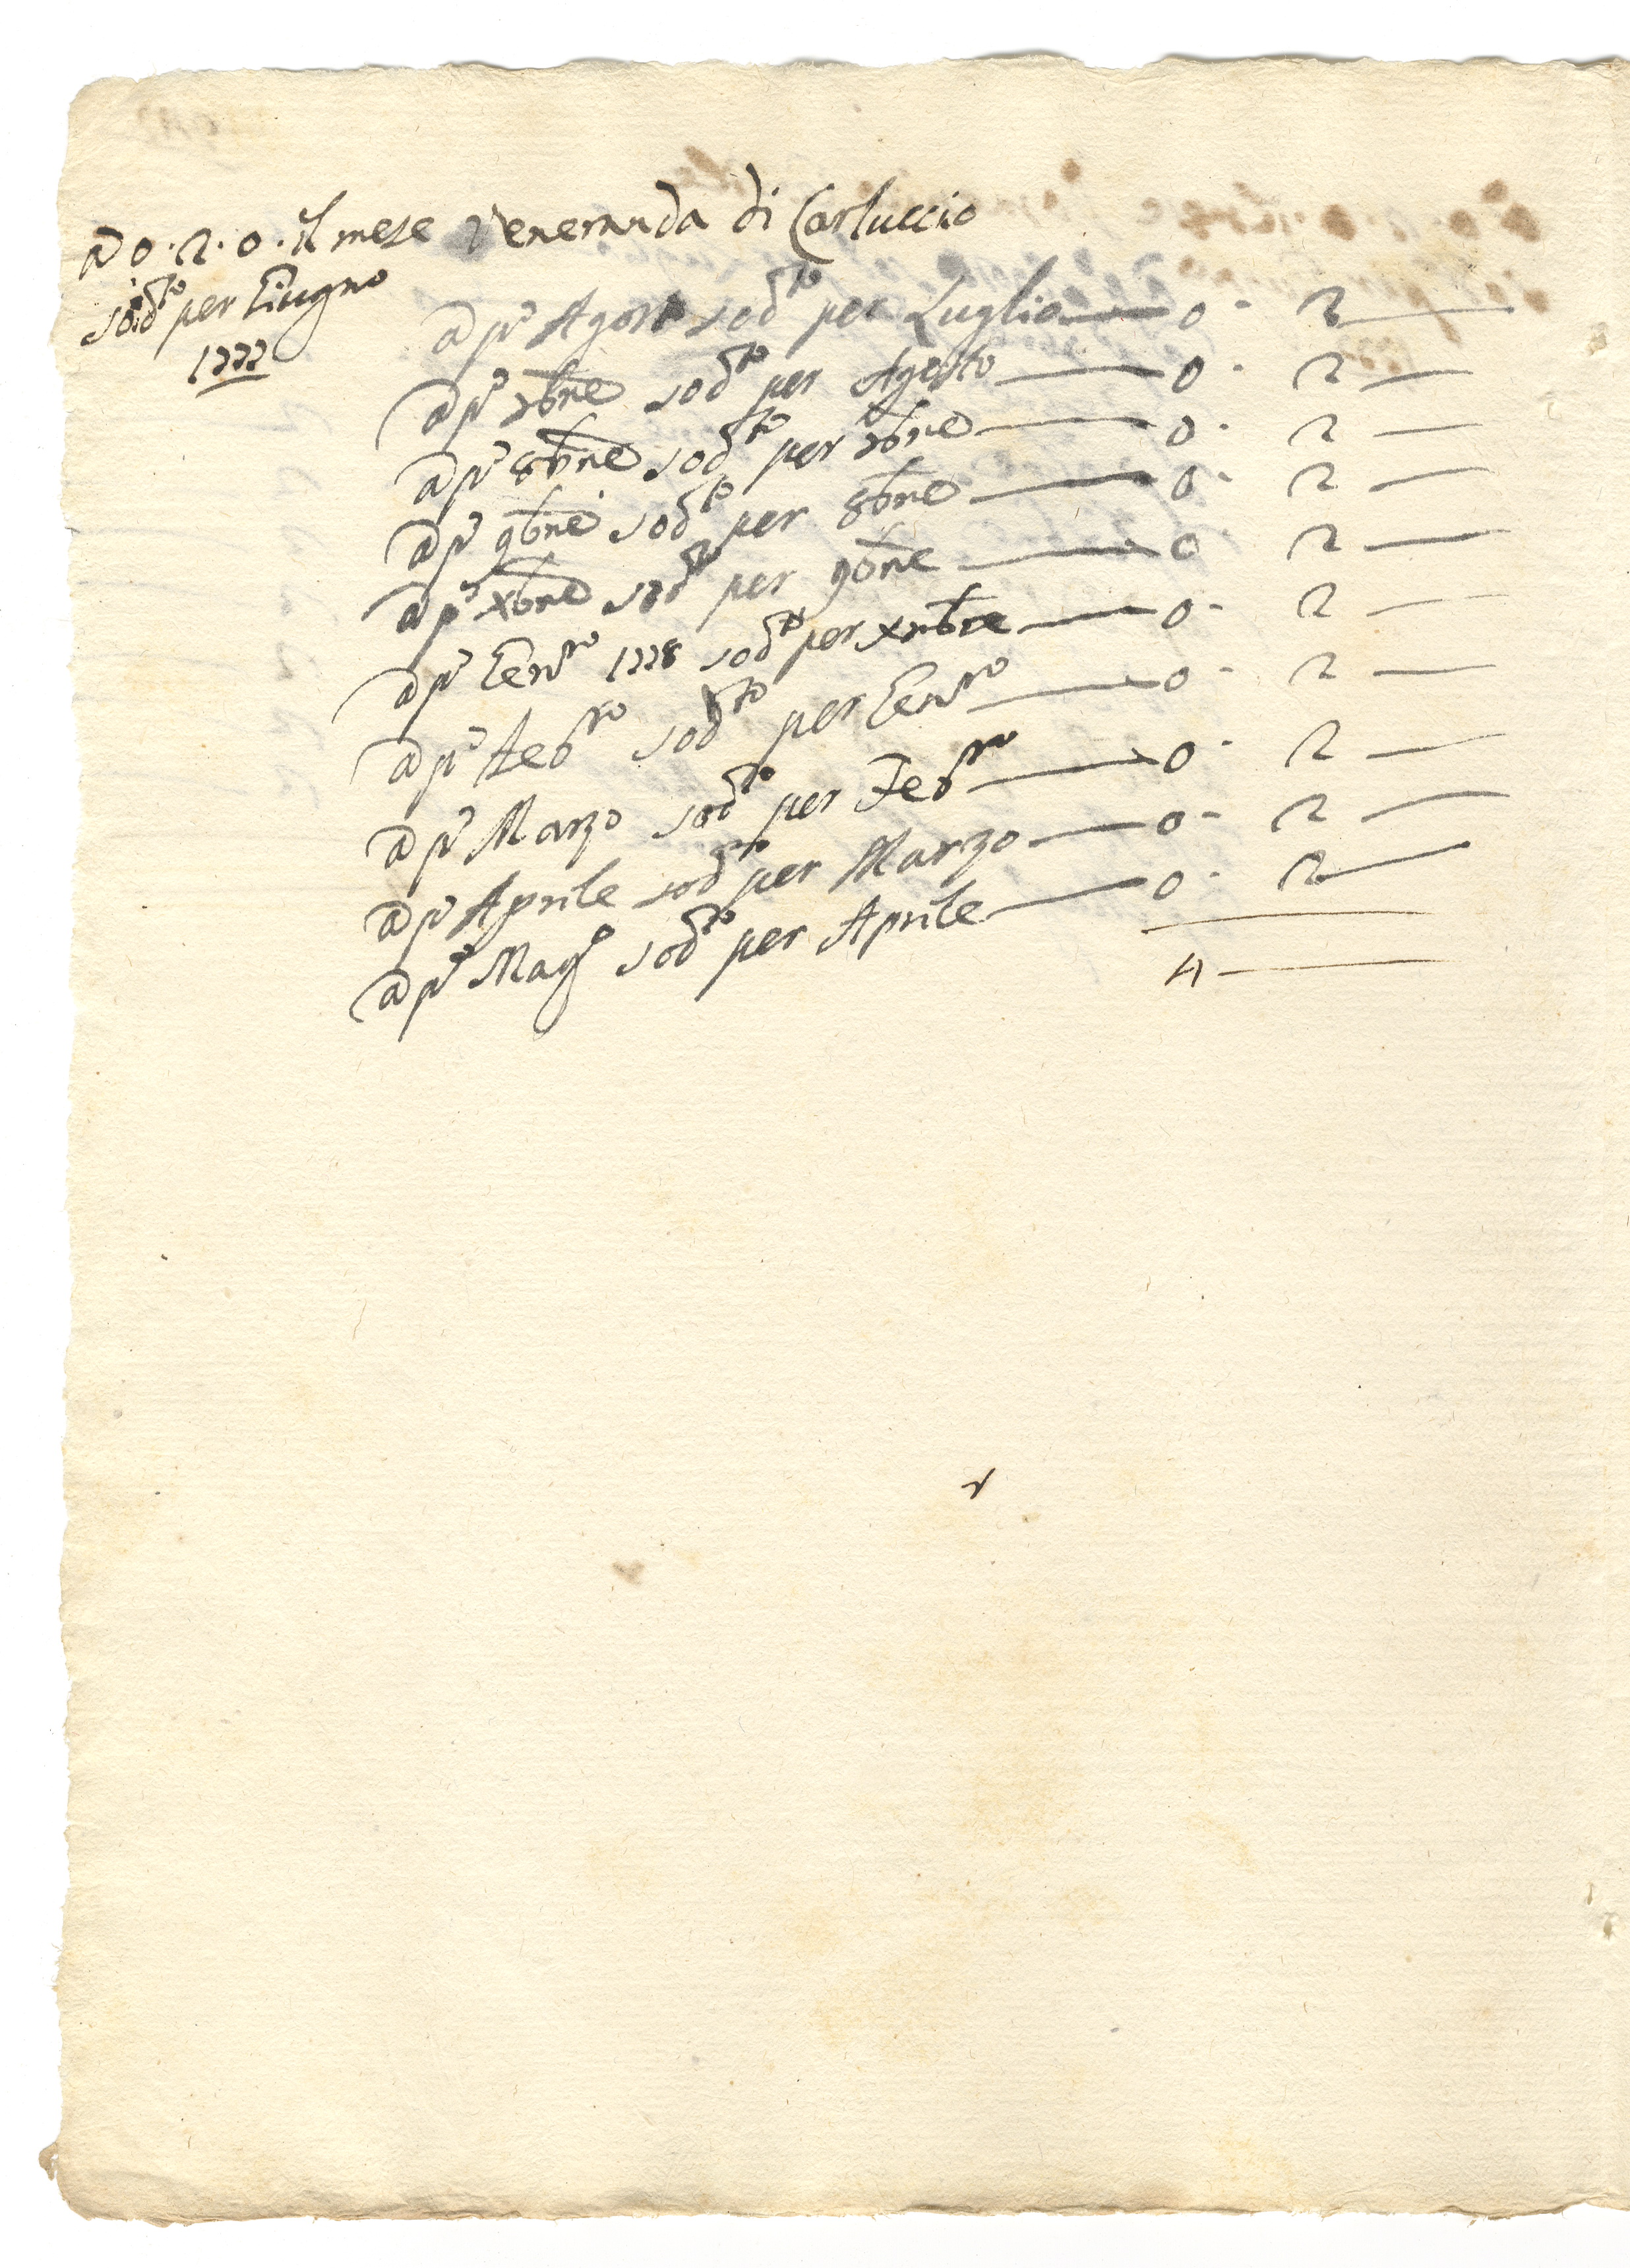 a 0.2.0. il mese Veneranda di Carluccio
sod.to per Giugno
1777
a p.o Agosto sod.to per Luglio — 0 - 2 —
a p.o 7bre sod.to per Agosto — 0 - 2 —
a p.o 8bre sod.to per 7bre — 0 - 2 —
a p.o 9bre sod.to per 8bre — 0 - 2 —
a p.o Xbre sod.to per 9bre — 0 2 —
a p.o Gen.ro 1778 sod.to per Xmbre — 0 - 2 —
a p.o Feb.ro sod.to per Gen.ro — 0 - 2 —
a p.o Marzo sod.to per Feb.ro — 0 - 2 —
a p.o Aprile sod.to per Marzo — 0 - 2 —
a p.o Mag.o sod.to per Aprile — 0 - 2 —
4 —